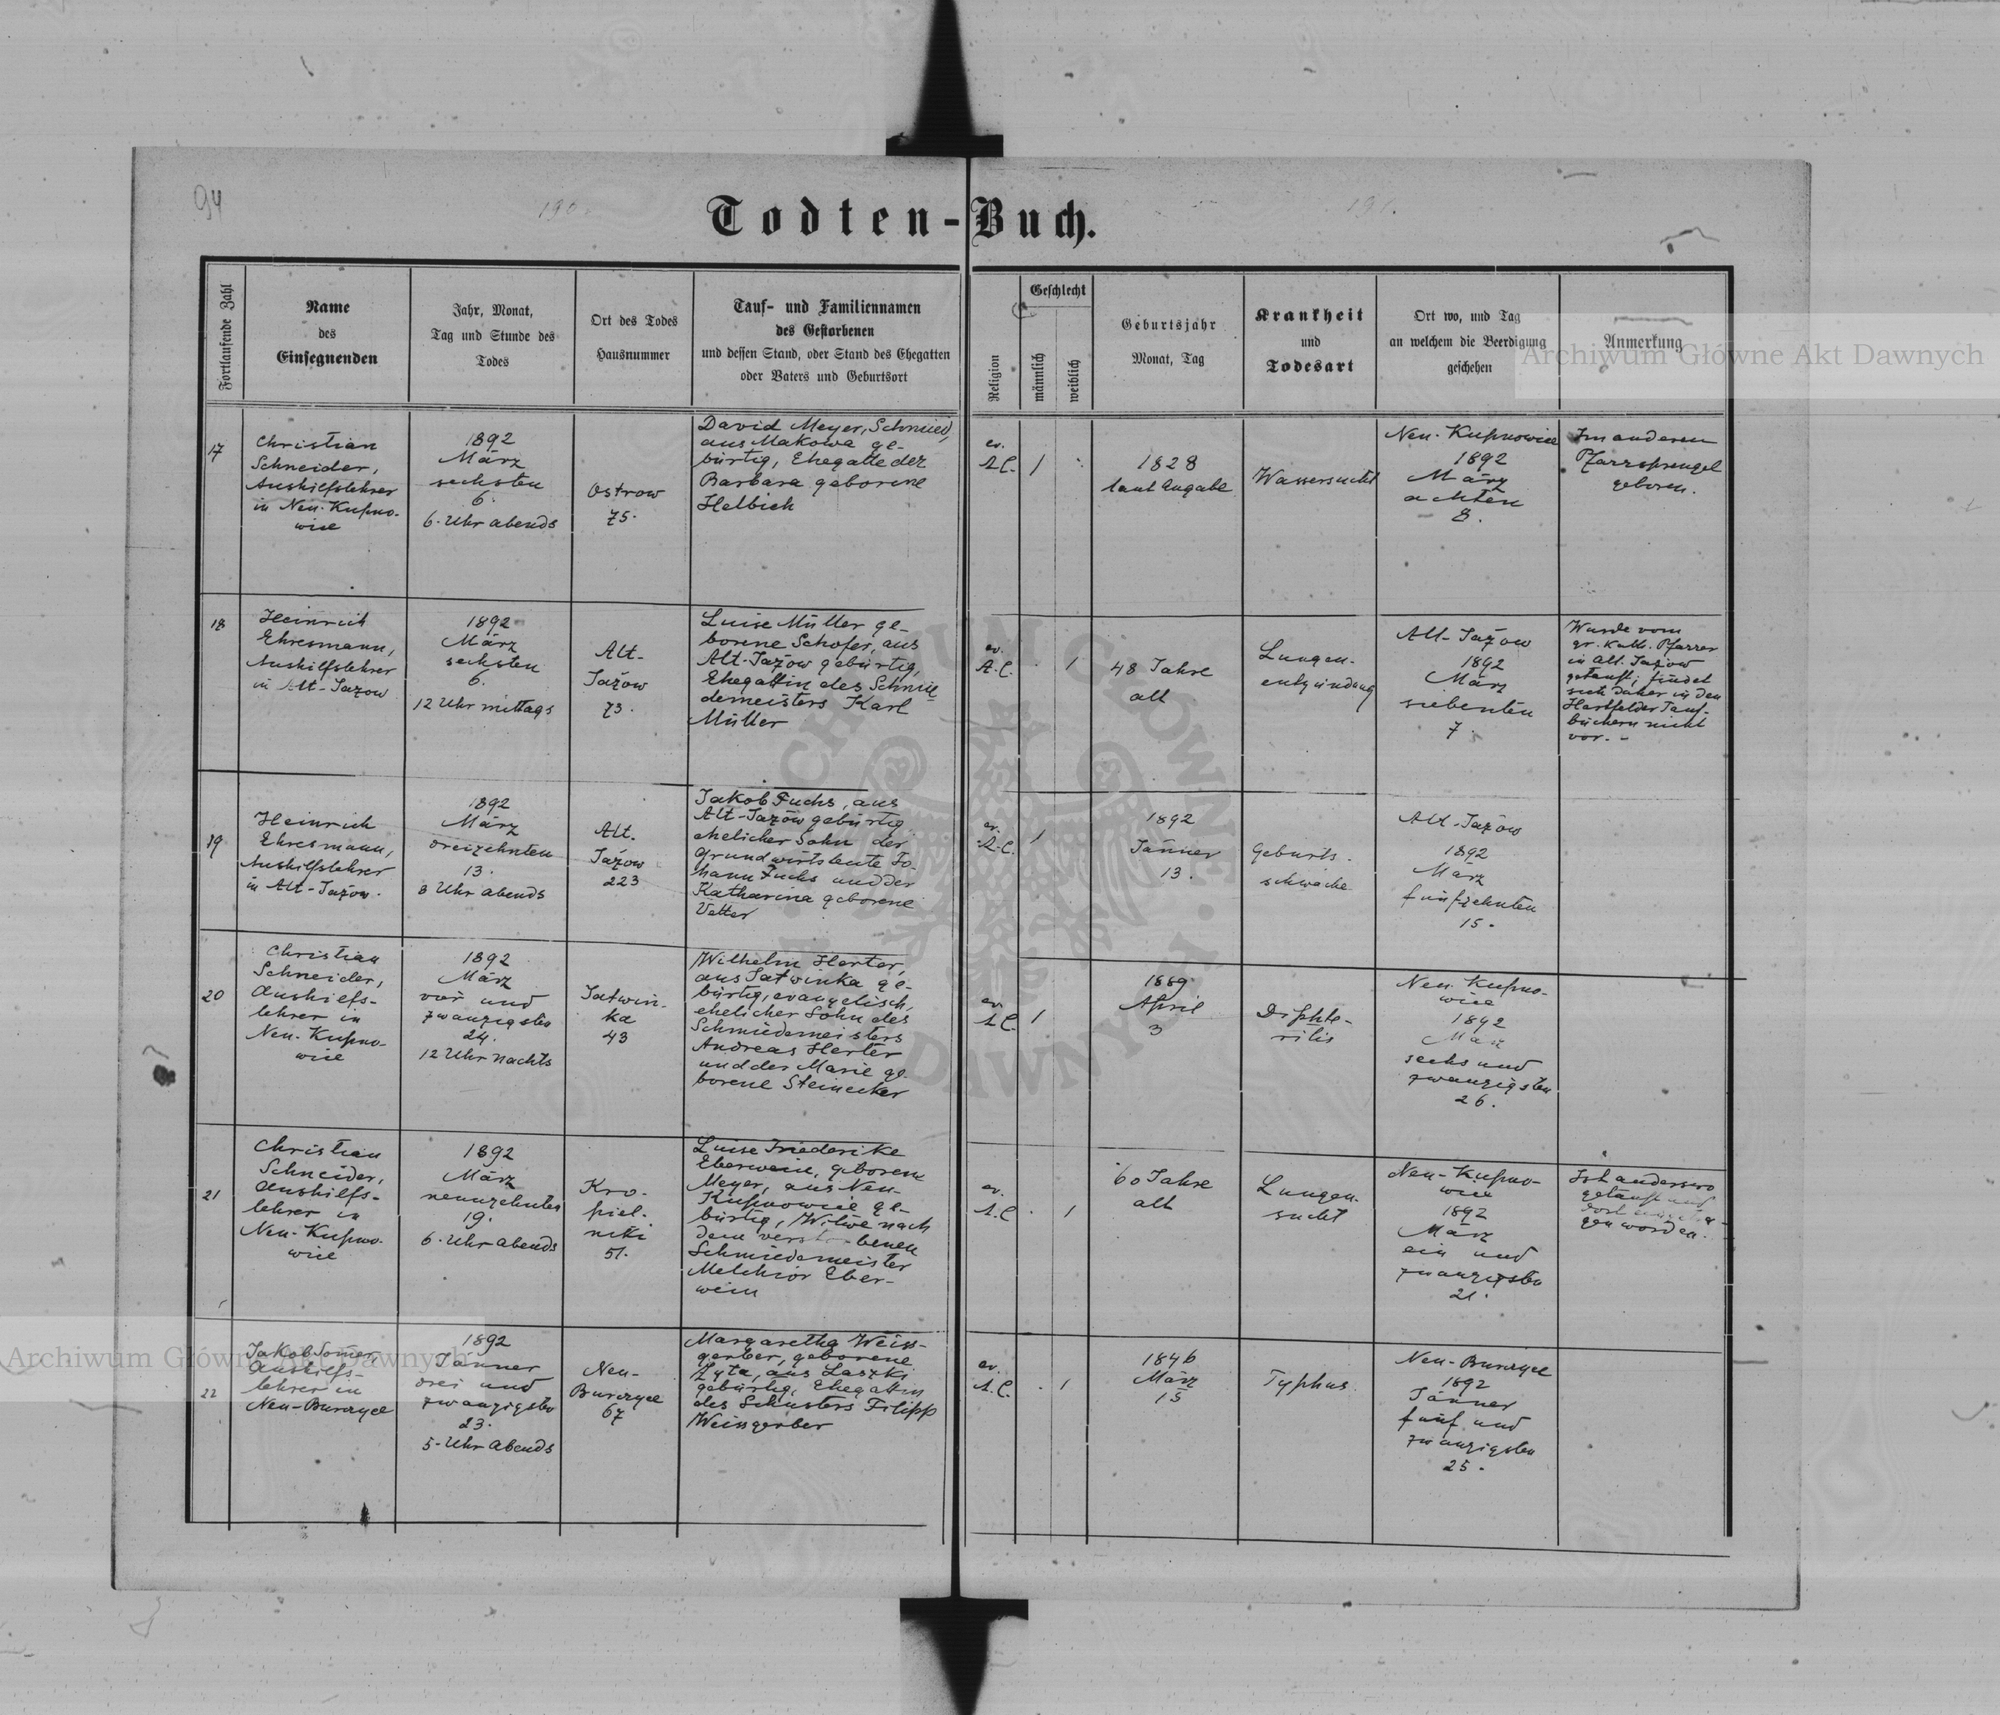 94
190.
191.
Todten-Buch.
Fortlaufende Zahl
Name
des
Einsegnenden
Jahr, Monat,
Tag und Stunde des
Todes
Ort des Todes
Hausnummer
Tauf- und Familiennamen
des Gestorbenen
und dessen Stand, oder Stand des Ehegatten
oder Vaters und Geburtsort
Religion
Geschlecht
männlich
weiblich
Geburtsjahr
Monat, Tag
Krankheit
und
Todesart
Ort wo, und Tag
an welchem die Beerdigung
geschehen
Anmerkung
17
Christian
Schneider,
Aushilfslehrer
in Neu-Kupno-
wice
1892
März
sechsten
6.
6. Uhr abends
Ostrow
75.
David Meyer, Schmied,
aus Makowa ge-
bürtig, Ehegatte der
Barbara geborene
Helbich
ev.
A.C.
1
1828
laut Angabe
Wassersucht
Neu-Kupnowice
1892
März
achten
8.
Im anderen
Pfarrsprengel
geboren.
18
Heinrich
Ehresmann,
Aushilfslehrer
in Alt-Jazow
1892
März
sechsten
6.
12 Uhr mittags
Alt-
Jazow
73.
Luise Müller ge-
borene Schofer, aus
Alt-Jazow gebürtig,
Ehegattin des Schmie-
demeisters Karl
Müller
ev.
A.C.
1
48 Jahre
alt
Lungen-
entzündung
Alt-Jazow
1892
März
siebenten
7.
Wurde vom
gr. kath. Pfarrer
in Alt. Jazow
getauft; findet
sich daher in den
Hartfelder Tauf-
büchern nicht
vor. -
19
Heinrich
Ehresmann,
Aushilfslehrer
in Alt-Jazow.
1892
März
dreizehnten
13.
8 Uhr abends
Alt.
Jazow
223
Jakob Fuchs, aus
Alt-Jazow gebürtig
ehelicher Sohn der
Grundwirtsleute Jo-
hann Fuchs und der
Katharina geborene
Vetter
ev.
A.C.
1
1892
Jänner
13.
Geburts-
schwäche
Alt-Jazow
1892
März
fünfzehnten
15.
20
Christian
Schneider,
Aushilfs-
lehrer in
Neu-Kupno-
wice
1892
März
vier und
zwanzigsten
24.
12 Uhr nachts
Jatwin-
ka
43
Wilhelm Herter,
aus Jatwinka ge-
bürtig, evangelisch,
ehelicher Sohn des
Schmiedemeisters
Andreas Herter
und der Marie ge-
borene Steinecker
ev.
A.C.
1
1889
April
3
Diphte-
ritis
Neu-Kupno-
wice
1892
März
sechs und
zwanzigsten
26.
21
Christian
Schneider,
Aushilfs-
lehrer in
Neu-Kupno-
wice
1892
März
neunzehnten
19.
6. Uhr abends
Kro-
piel-
niki
51.
Luise Friederike
Eberwein, geborene
Meyer, aus Neu-
Kupnowice ge-
bürtig, Witwe nach
dem verstorbenen
Schmiedemeister
Melchior Eber-
wein
ev.
A.C.
1
60 Jahre
alt
Lungen-
sucht
Neu-Kupno-
wice
1892
März
ein und
zwanzigsten
21.
Ist anderswo
getauft und
dort
gen worden.
22
Jakob Somer,
Aushilfs-
lehrer in
Neu-Burczyce
1892
Jänner
drei und
zwanzigsten
23.
5. Uhr abends
Neu-
Burczyce
67
Margaretha Weiss-
gerber, geborene
Zyta, aus Laszki
gebürtig, Ehegattin
des Schusters Filipp
Weissgerber
ev.
A.C.
1
1846
März
15
Typhus
Neu-Burczyce
1892
Jänner
fünf und
zwanzigsten
25.
Archiwum Główne Akt Dawnych
Archiwum Główne Akt Dawnych
ARCHIWUM GŁÓWNE AKT DAWNYCH